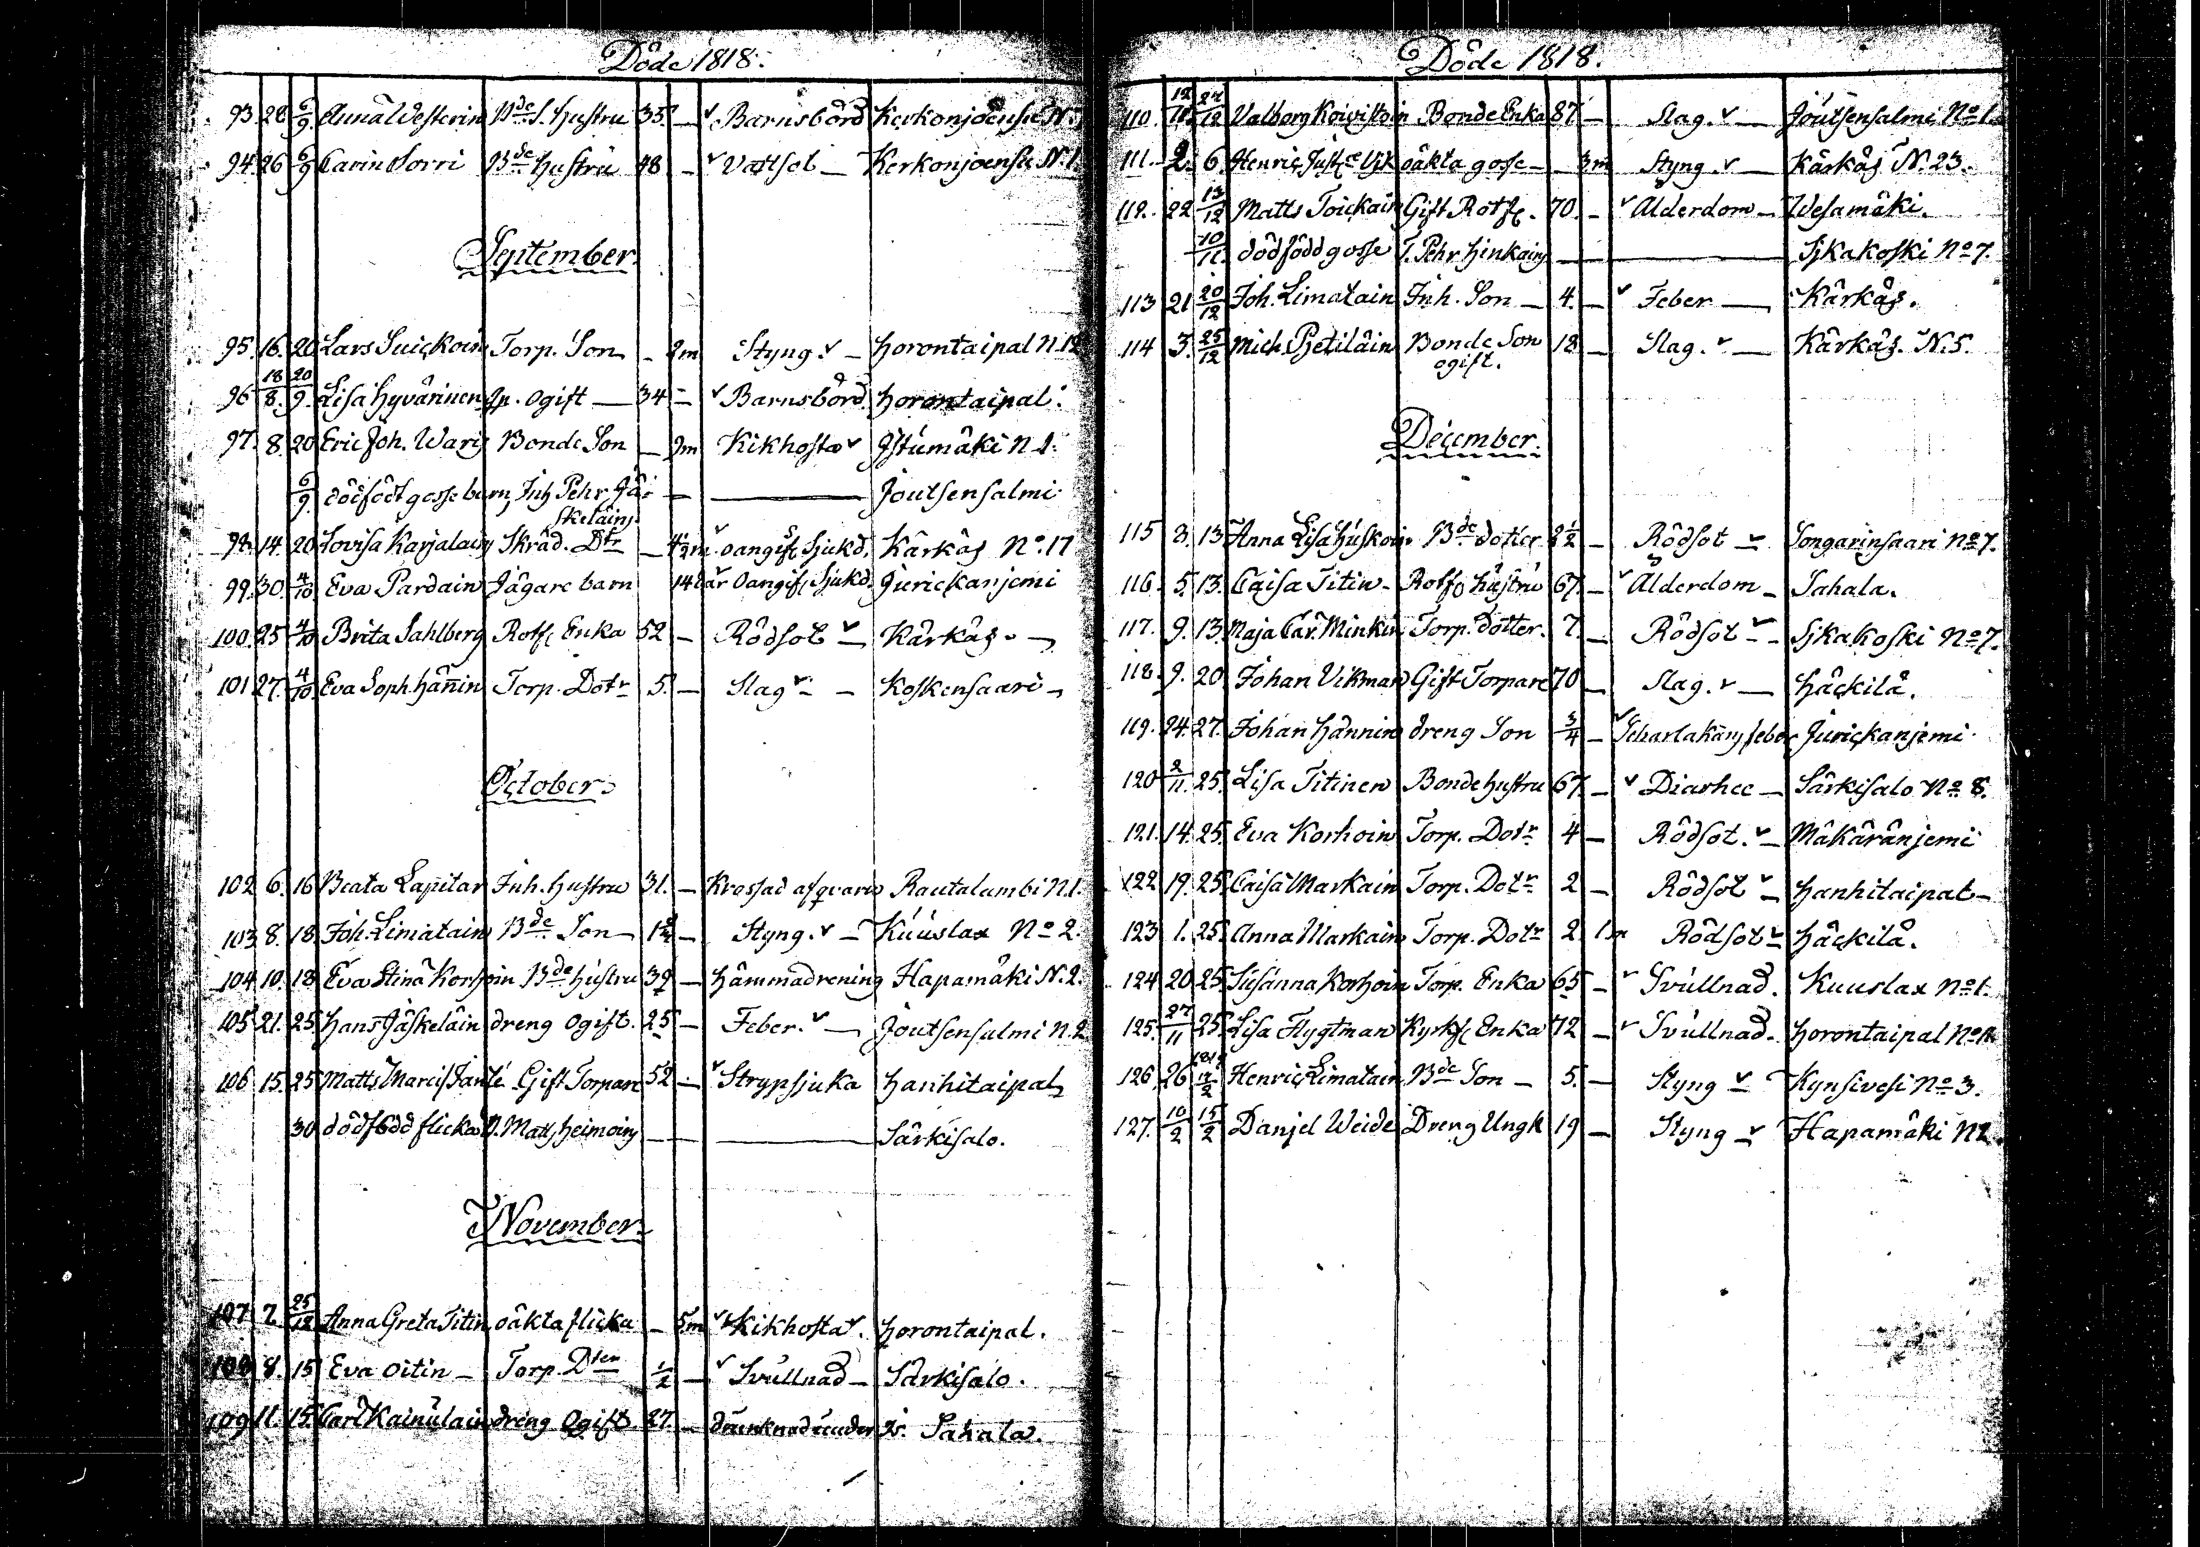 Döde 1818.
93. 28 6/9. Anna Westerin Bde S. hustru 35. — Barnsbörd Kerkonjoensu N.
94 26 6/9 Carin Sorri Bde hustru 48 — Vattsot — Kerkonjoensu N. 1.
September.
95. 16. 20 Lars Suickoin Torp. Son — 2m Styng. — Horontaipal N. 12
96 18/8. 20/9. Lisa Hyvärinen Jp. ogift — 34 — Barnsbörd Horontaipal.
97. 8. 20 Eric Joh. Waris Bonde Son — 2m Kikhosta Istumäki N 1.
6/9. dödfödt gossebarn, Inh Pehr Jä- — — Joutsensalmi
skelains
98. 14. 20 Lovisa Karjalain Skräd. Dtr — 4½m. oangifv Sjukd. Kärkäs No. 17
99. 30. 4/10 Eva Pardain Jägare barn 14 år oangifv Sjukd. Jurickanjemi
100. 25 4/10 Brita Sahlberg Rotf. Enka 52 — Rödsot — Kärkäs. —
101 27. 4/10. Eva Soph. Hännin Torp. Dotr 5. — Slag — Koskensaari —
October.
102 6. 16 Beata Lapitar Inh. hustru 31. — Krossad af qvarn Rautalambi N. 1.
103 8. 18. Joh. Limatain Bde Son — 1 — Styng. — Kuuslax No 2.
104 10. 18 Eva Stina Korhoin Bde hustru 39 — hämmadrening Hapamäki N. 2.
105 21. 25 Hans Jäskeläin dreng Ogift. 25 — Feber. — Joutsensalmi N. 2
106. 15. 25 Matts Marcis Gift Torpare 52 — Strypsjuka Hanhitaipal
30 dödfödd flicka Matts Heimoins — — Särkisalo.
November
107 7. 25/12 Anna Greta Titin oäkta flicka — 5m Kikhosta. Horontaipal.
108 8. 15 Eva Oitin — Torp. Dter ½ — Svullnad — Särkisalo.
109 11. 15. Carl Kainulain dreng Ogift 27. — Sahala.
Döde 1818.
110. 27/12 Valborg Koivistoin Bonde Enka 87 — Slag. — Joutsensalmi No 1.
111. 2. 6. Henric oäkta gosse — 3m Styng. — Kärkäs N. 23.
112. 22 13/12 Matts Toickain Gift Rotf. 70. — Ålderdom — Wesamäki.
10/11. dödfödd gosse T. Pehr Hinkains — — Sjkakoski No 7.
113 21 20/12 Joh. Limatain Inh. Son — 4. — Feber — Kärkäs.
114 3. 25/12 Mich. Pjetiläin Bonde Son 18 — Slag. — Kärkäs. N. 5.
ogift.
December.
115 3. 13 Anna Lisa Huskoin Bde dotter 2½ — Rödsot — Songarinsaari No 7.
116. 5. 13. Caisa Titin — Rotf hustru 67. — Ålderdom — Sahala.
117. 9. 13. Maja Car. Minkin Torp. dotter. 7. — Rödsot — Sjkakoski No 7.
118. 9. 20 Johan Vikman Gift Torpare 70 — Slag. — Häckilä.
119. 24. 27. Johan Hännin dreng Son 3/4 — Scharlakans feber Jurickanjemi
120 2/11. 25. Lisa Titinen Bonde hustru 67. — Diarhee — Särkisalo No 8.
121. 14. 25. Eva Korhoin Torp. Dotr 4 — Rödsot. — Mäkäränjemi
122 19. 25. Caisa Markain Torp. Dotr 2 — Rödsot — Hanhitaipal —
123 1. 25. Anna Markain Torp. Dotr 2 1m Rödsot — Häckilä.
124 20 25. Susanna Korhoin Torp. Enka 65 — Svullnad. Kuuslax No 1.
125. 27/11 25. Lisa Flygtman Kyrkf Enka 72 — Svullnad. Horontaipal No
126 26 1819 Henric Limatain Bde Son — 5. — Styng — Kynsivesi No 3.
127. 10/2 15/2 Danjel Weide Dreng Ungk 19 — Styng — Hapamäki N 2.